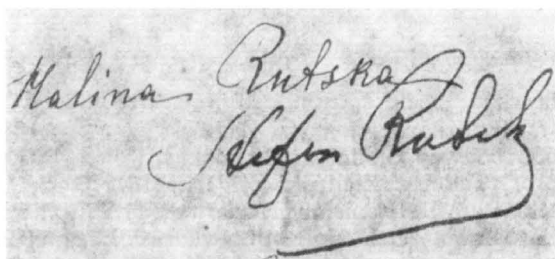 Malina Rutska
Stefan Rutsk